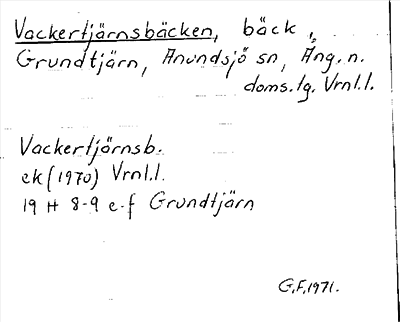 Vackertjärnsbäcken, bäck,
Grundtjärn, Anundsjö sn, Ång. n.
doms.lg. Vrnl.l.
Vackertjärnsb.
ek (1970) Vrnl.l.
19 H 8-9 e-f Grundtjärn
G.F. 1971.